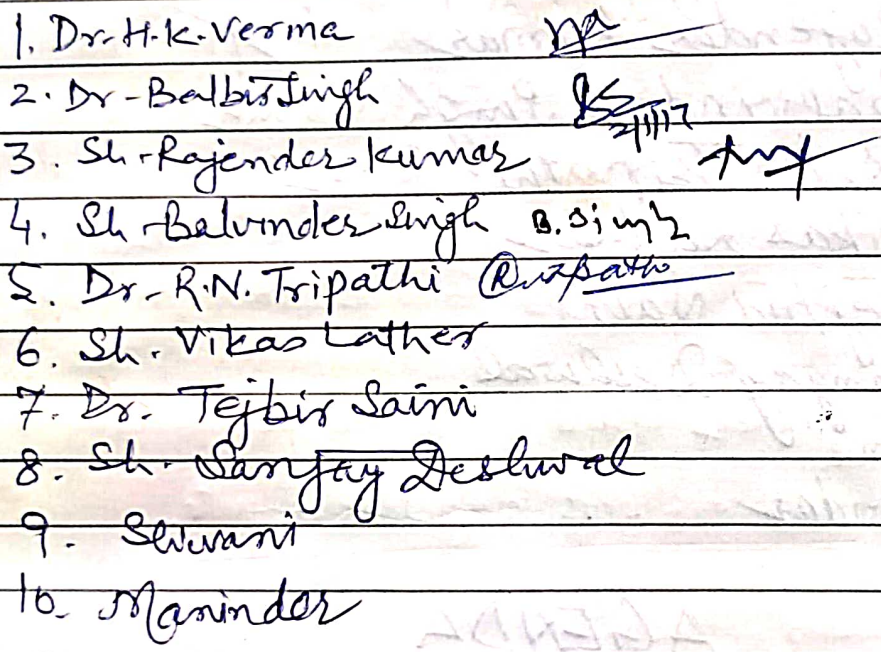 1. Dr. H.K. Verma
2. Dr - Balbir Singh
2/1/17
3. Sh - Rajender Kumar
4. Sh - Balvinder Singh B. Singh
5. Dr - R.N. Tripathi
6. Sh. Vikas Lather
7. Dr. Tejbir Saini
8. Sh. Sanjay Deshwal
9. Shivani
10. Maninder